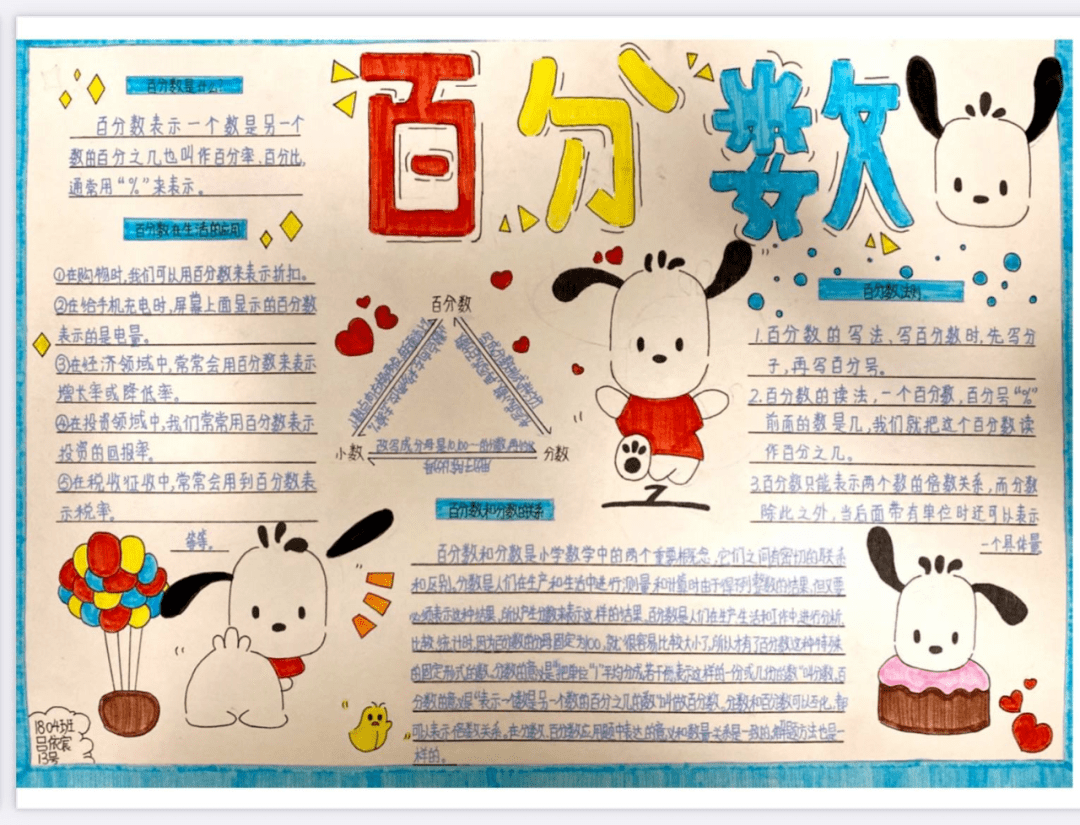 百分数
百分数是什么?
百分数表示一个数是另一个
数的百分之几也叫作百分率、百分比,
通常用“%”来表示。
百分数在生活的应用
①在购物时,我们可以用百分数来表示折扣。
②在给手机充电时,屏幕上面显示的百分数
表示的是电量。
③在经济领域中,常常会用百分数来表示
增长率或降低率。
④在投资领域中,我们常常用百分数表示
投资的回报率。
⑤在税收征收中,常常会用到百分数表
示税率。
等等。
百分数
小数
分数
百分数法则
1.百分数的写法,写百分数时,先写分
子,再写百分号。
2.百分数的读法,一个百分数,百分号“%”
前面的数是几,我们就把这个百分数读
作百分之几。
3.百分数只能表示两个数的倍数关系,而分数
除此之外,当后面带有单位时还可以表示
一个具体量
百分数和分数的联系
百分数和分数是小学数学中的两个重要概念,它们之间有密切的联系
和区别。分数是人们在生产和生活中进行测量和计算时由于得不到整数的结果,但又要
必须表示这种结果,所以产生分数来表示这样的结果。百分数是人们在生产生活和工作中进行分析
比较统计时,因为百分数的分母固定为100,就很容易比较大小了,所以才有了百分数这种特殊
的固定形式的数。分数的意义是“把单位“1”平均分成若干份,表示这样的一份或几份的数”叫分数,百
分数的意义是“表示一个数是另一个数的百分之几的数”叫做百分数。分数和百分数可以互化,都
可以表示倍数关系。在分数、百分数应用题中表达的意义和数量关系是一致的,解题方法也是一
样的。
1804班
13号